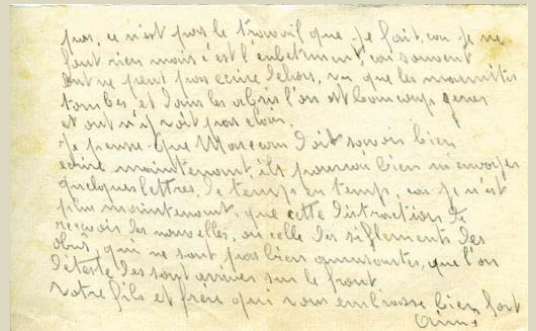 pas, ce n'est pas le travail que je fait, car je ne
fait rien mais c'est l'enbetment, car souvent
ont ne peut pas ecrire dehors, vu que les marmites
tombes et dans les abris l'on est beaucoup genes
et ont n'y voit pas clair.
Je pense que Marcean doit savoir bien
ecrire maintenant, ils pourrou bien m'envoyer
quelques lettres, de temps en temp, car je n'est
plus maintenant, que cette distraction de
recevoir des nouvelles, ou celle des sifflements des
obus, qui ne sont pas bien amusantes, que l'on
déteste des sont arrivés sur le front
Votre fils et frère qui vous embrasse bien fort
Aimé